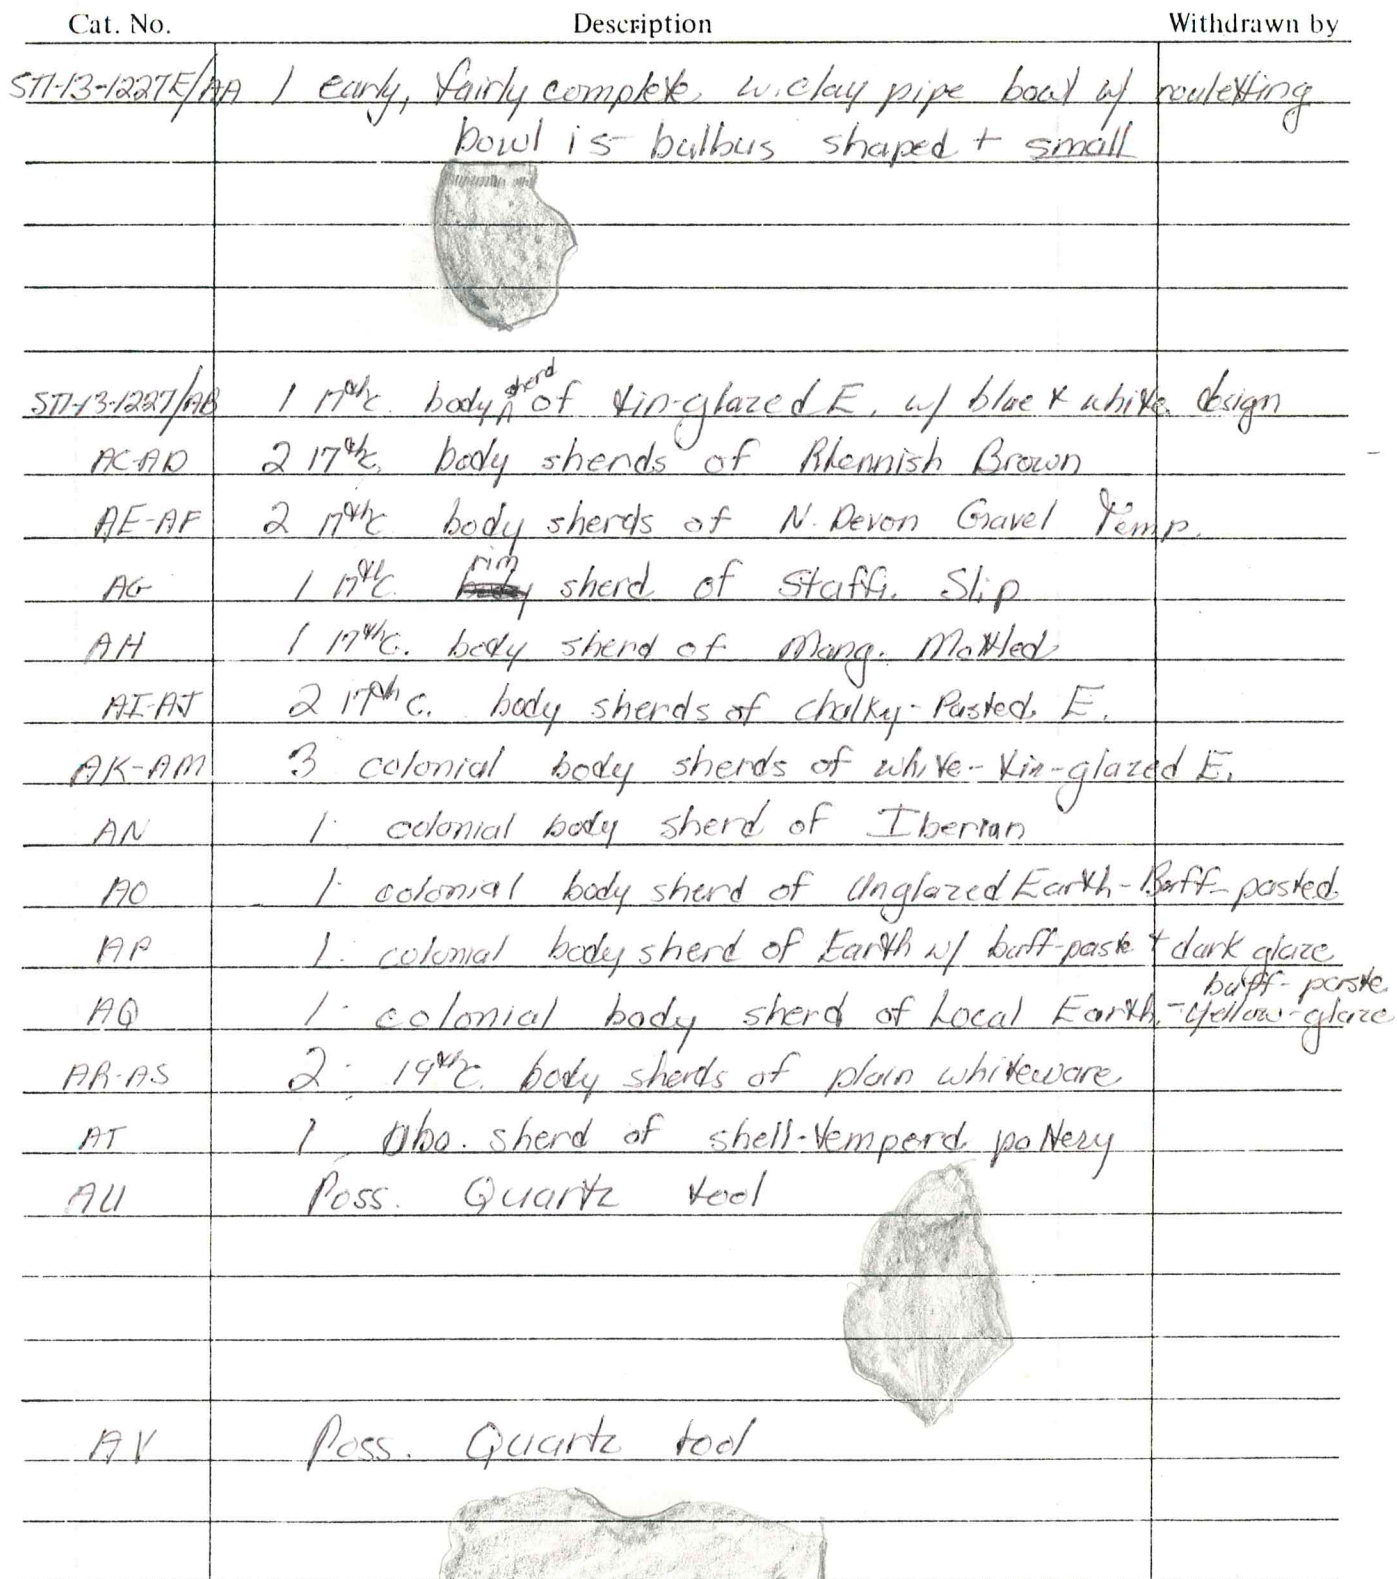 Cat. No. Description Withdrawn by
ST1-13-1227E/AA 1 early, fairly complete w. clay pipe bowl w/ rouletting
bowl is bulbus shaped + small
ST1-13-1227/AB 1 17th c. body sherd of tin-glazed E. w/ blue & white design
AC-AD 2 17th c. body sherds of Rhennish Brown
AE-AF 2 17th c. body sherds of N. Devon Gravel Temp.
AG 1 17th c. rim sherd of Staff. Slip
AH 1 17th c. body sherd of Mang. Mottled
AI-AJ 2 17th c. body sherds of chalky-Pasted E.
AK-AM 3 colonial body sherds of white-tin-glazed E.
AN 1 colonial body sherd of Iberian
AO 1 colonial body sherd of Unglazed Earth-Buff-pasted
AP 1 colonial body sherd of Earth w/ buff-paste + dark glaze
AQ 1 colonial body sherd of Local Earth.-yellow-glaze
buff-paste
AR-AS 2 19th c. body sherds of plain whiteware
AT 1 Abo. sherd of shell-temperd pottery
AU Poss. Quartz tool
AV Poss. Quartz tool